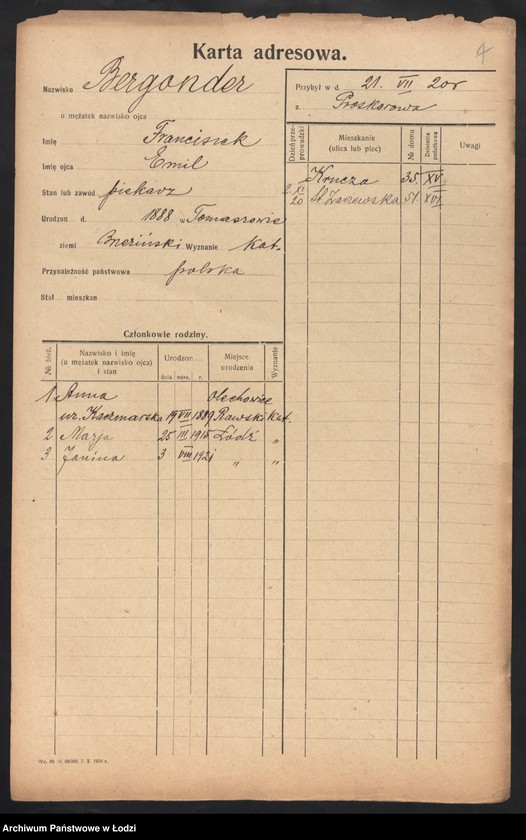 Karta adresowa.
4
Nazwisko Bergonder
u mężatek nazwisko ojca
Imię Franciszek
Imię ojca Emil
Stan lub zawód piekarz
Urodzon d. 1888 w Tomaszowie
ziemi Brzeziński Wyznanie kat.
Przynależność państwowa polska
Stał mieszkan
Przybył w d. 21. VII 20r
z Proskurowa
Dzień przeprowadzki
Mieszkanie
(ulica lub plac)
№ domu
Dzielnica podatkowa
Uwagi
Krucza 35. XV
2. XI 20 St. Zarzewska 51. XVI
Członkowie rodziny.
№ bież.
Nazwisko i imię
(u mężatek nazwisko ojca)
i stan
Urodzon
dnia mies. r.
Miejsce
urodzenia
Wyznanie
1 Anna Olechowice
ur. Kaczmarska 19 VII 1889 Rawski Kat.
2 Marja 25 III 1915 Łódź "
3 Janina 3 VIII 1921 " "
Archiwum Państwowe w Łodzi